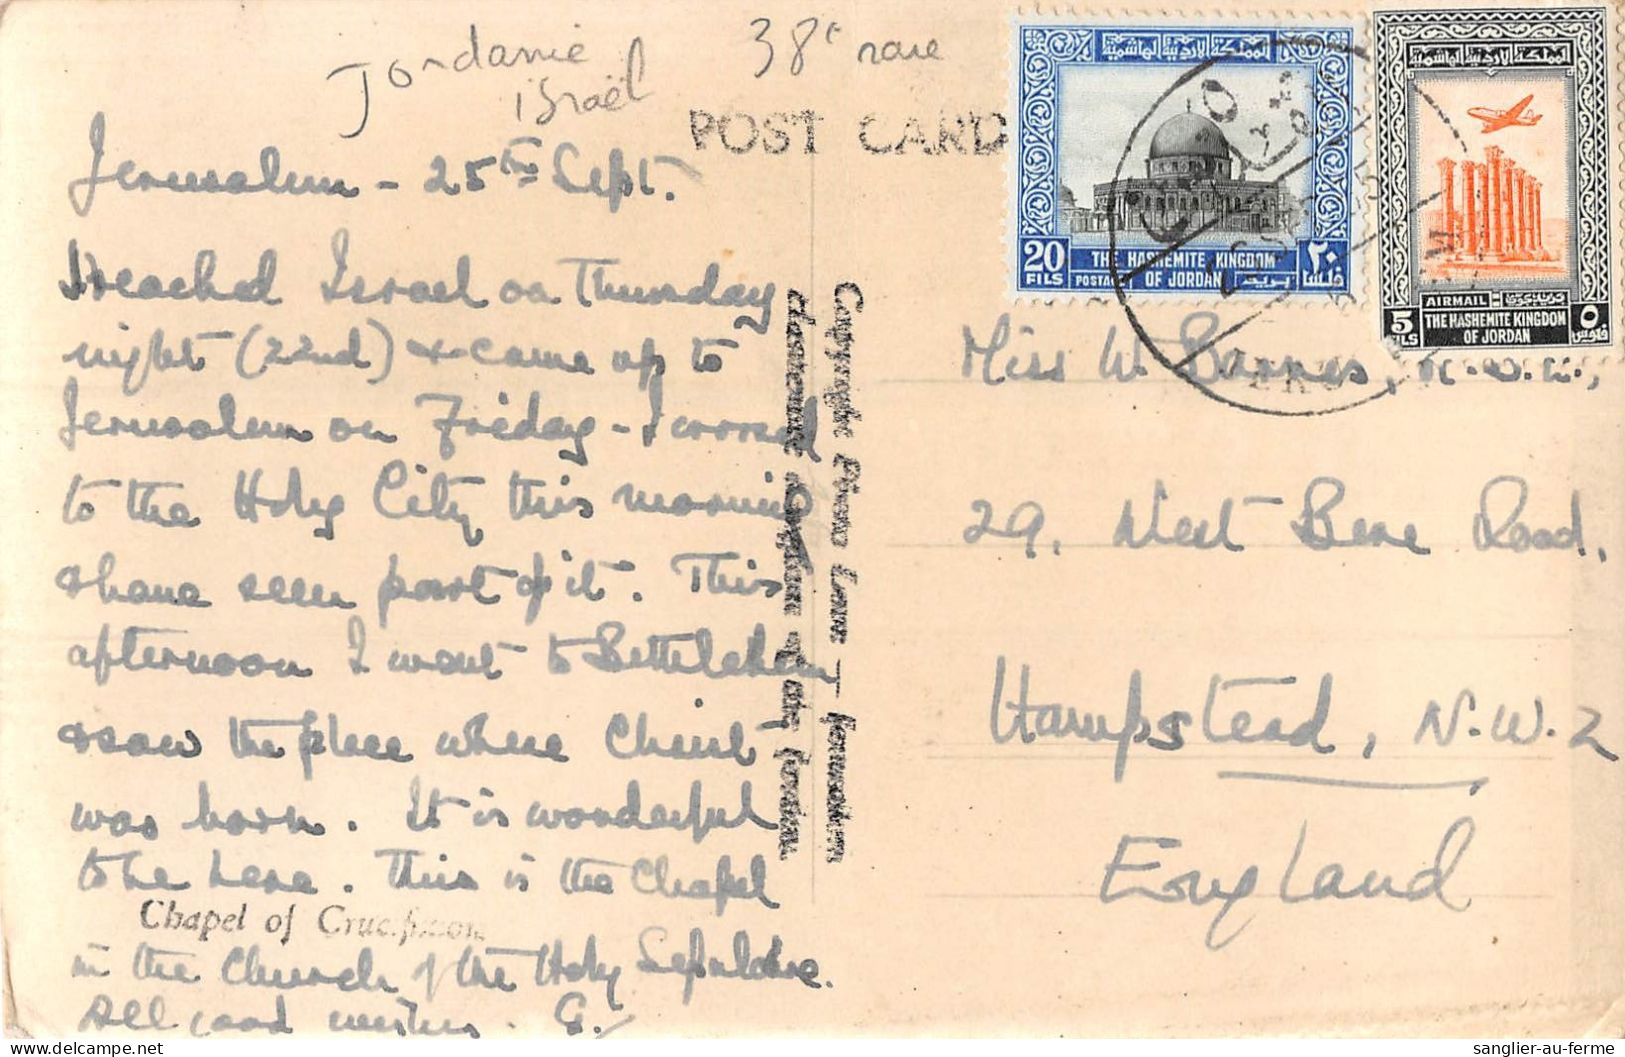 Jordanie
israël
38€ rare
POST CARD
Jerusalem - 25th Sept.
I reached Israel on Thursday
night (22nd) & came up to
Jerusalem on Friday - I crossed
to the Holy City this morning
& have seen part of it. This
afternoon I went to Bethlehem
& saw the place where Christ
was born. It is wonderful
to be here. This is the Chapel
Chapel of Crucifixion
in the Church of the Holy Sepulchre.
All good wishes. G.
Copyright Photo Leon
المملكة الأردنية الهاشمية
20 FILS
THE HASHEMITE KINGDOM
POSTAGE OF JORDAN
٢٠ فلسا
بريد
المملكة الأردنية الهاشمية
AIRMAIL
5 FILS
THE HASHEMITE KINGDOM
OF JORDAN
٥ فلوس
JERU
Miss W. Barnes,
29. West Bere Road.
Hampstead, N.W.2
England
sanglier-au-ferme